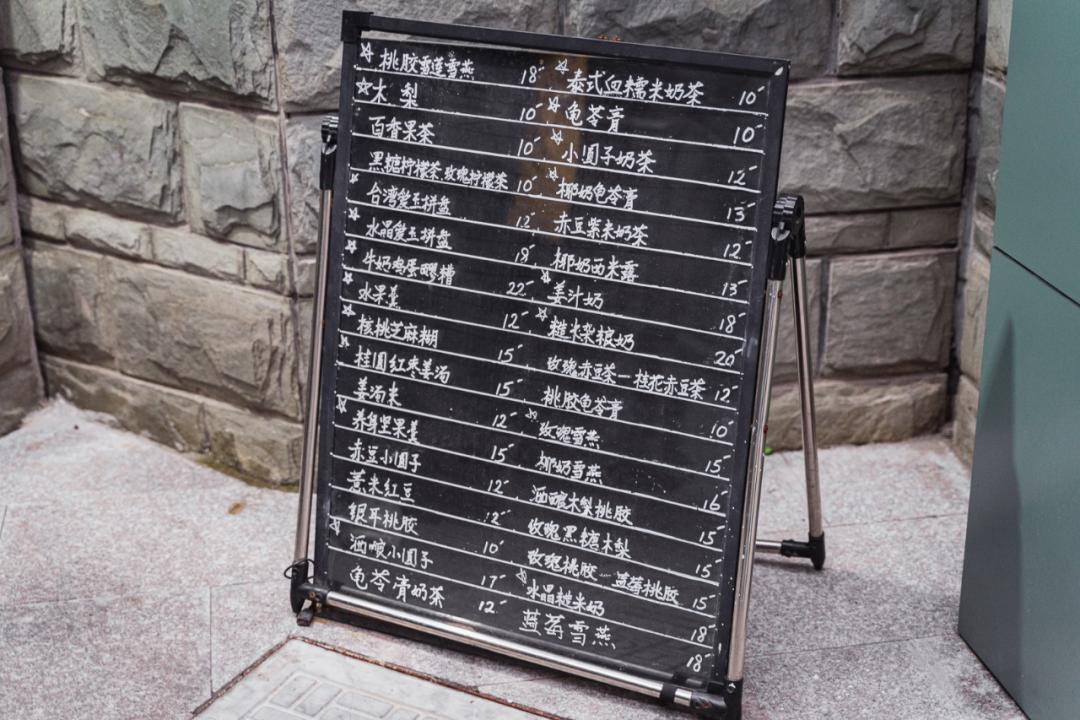 ☆桃胶雪莲雪燕 18
☆木梨 10
百香果茶 10
黑糖柠檬茶.玫瑰柠檬茶 10
☆台湾爱玉拼盘 12
☆水晶爱玉拼盘 18
☆牛奶鸡蛋醪糟 22
☆水果羹 12
☆核桃芝麻糊 15
☆桂圆红枣姜汤 15
姜汤来 12
☆养身坚果羹 15
赤豆小圆子 12
薏米红豆 12
银耳桃胶 10
☆酒酿小圆子 17
龟苓膏奶茶 12
☆泰式血糯米奶茶 10
☆龟苓膏 10
☆小圆子奶茶 12
☆椰奶龟苓膏 13
赤豆紫米奶茶 12
椰奶西米露 13
☆姜汁奶 18
☆糙米杂粮奶 20
玫瑰赤豆茶一桂花赤豆茶 12
桃胶龟苓膏 10
☆玫瑰雪燕 15
椰奶雪燕 16
酒酿木梨桃胶 15
玫瑰黑糖木梨 15
玫瑰桃胶 蓝莓桃胶 15
☆水晶糙米奶 18
蓝莓雪燕 18